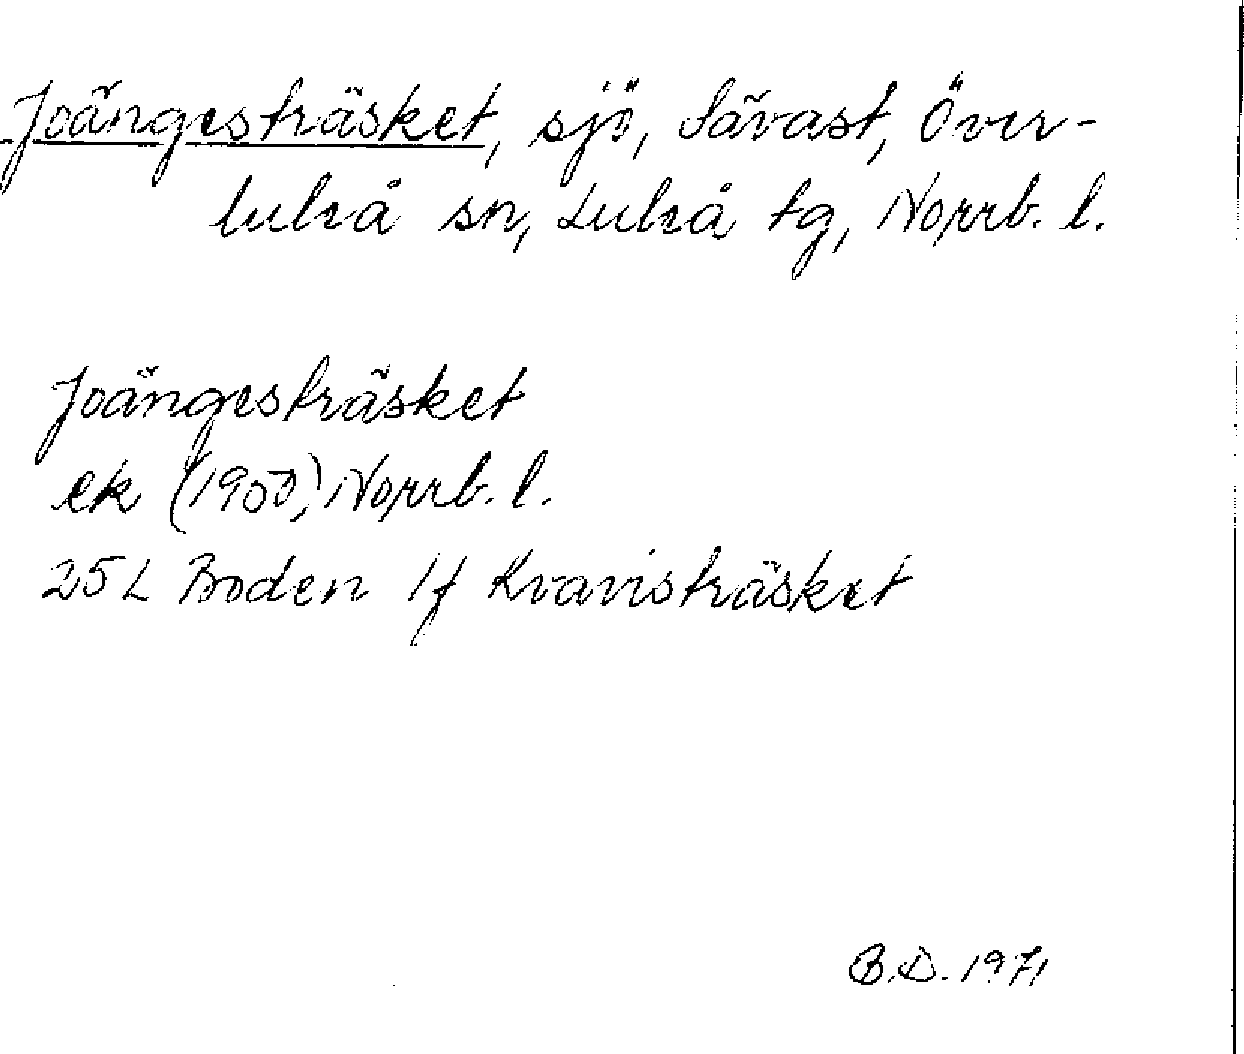 Joängesträsket, sjö, Sävast, Över-
luleå sn, Luleå tg, Norrb. l.
Joängesträsket
ek (1950), Norrb. l.
25L Boden 1f Kvavisträsket
B.D. 1971